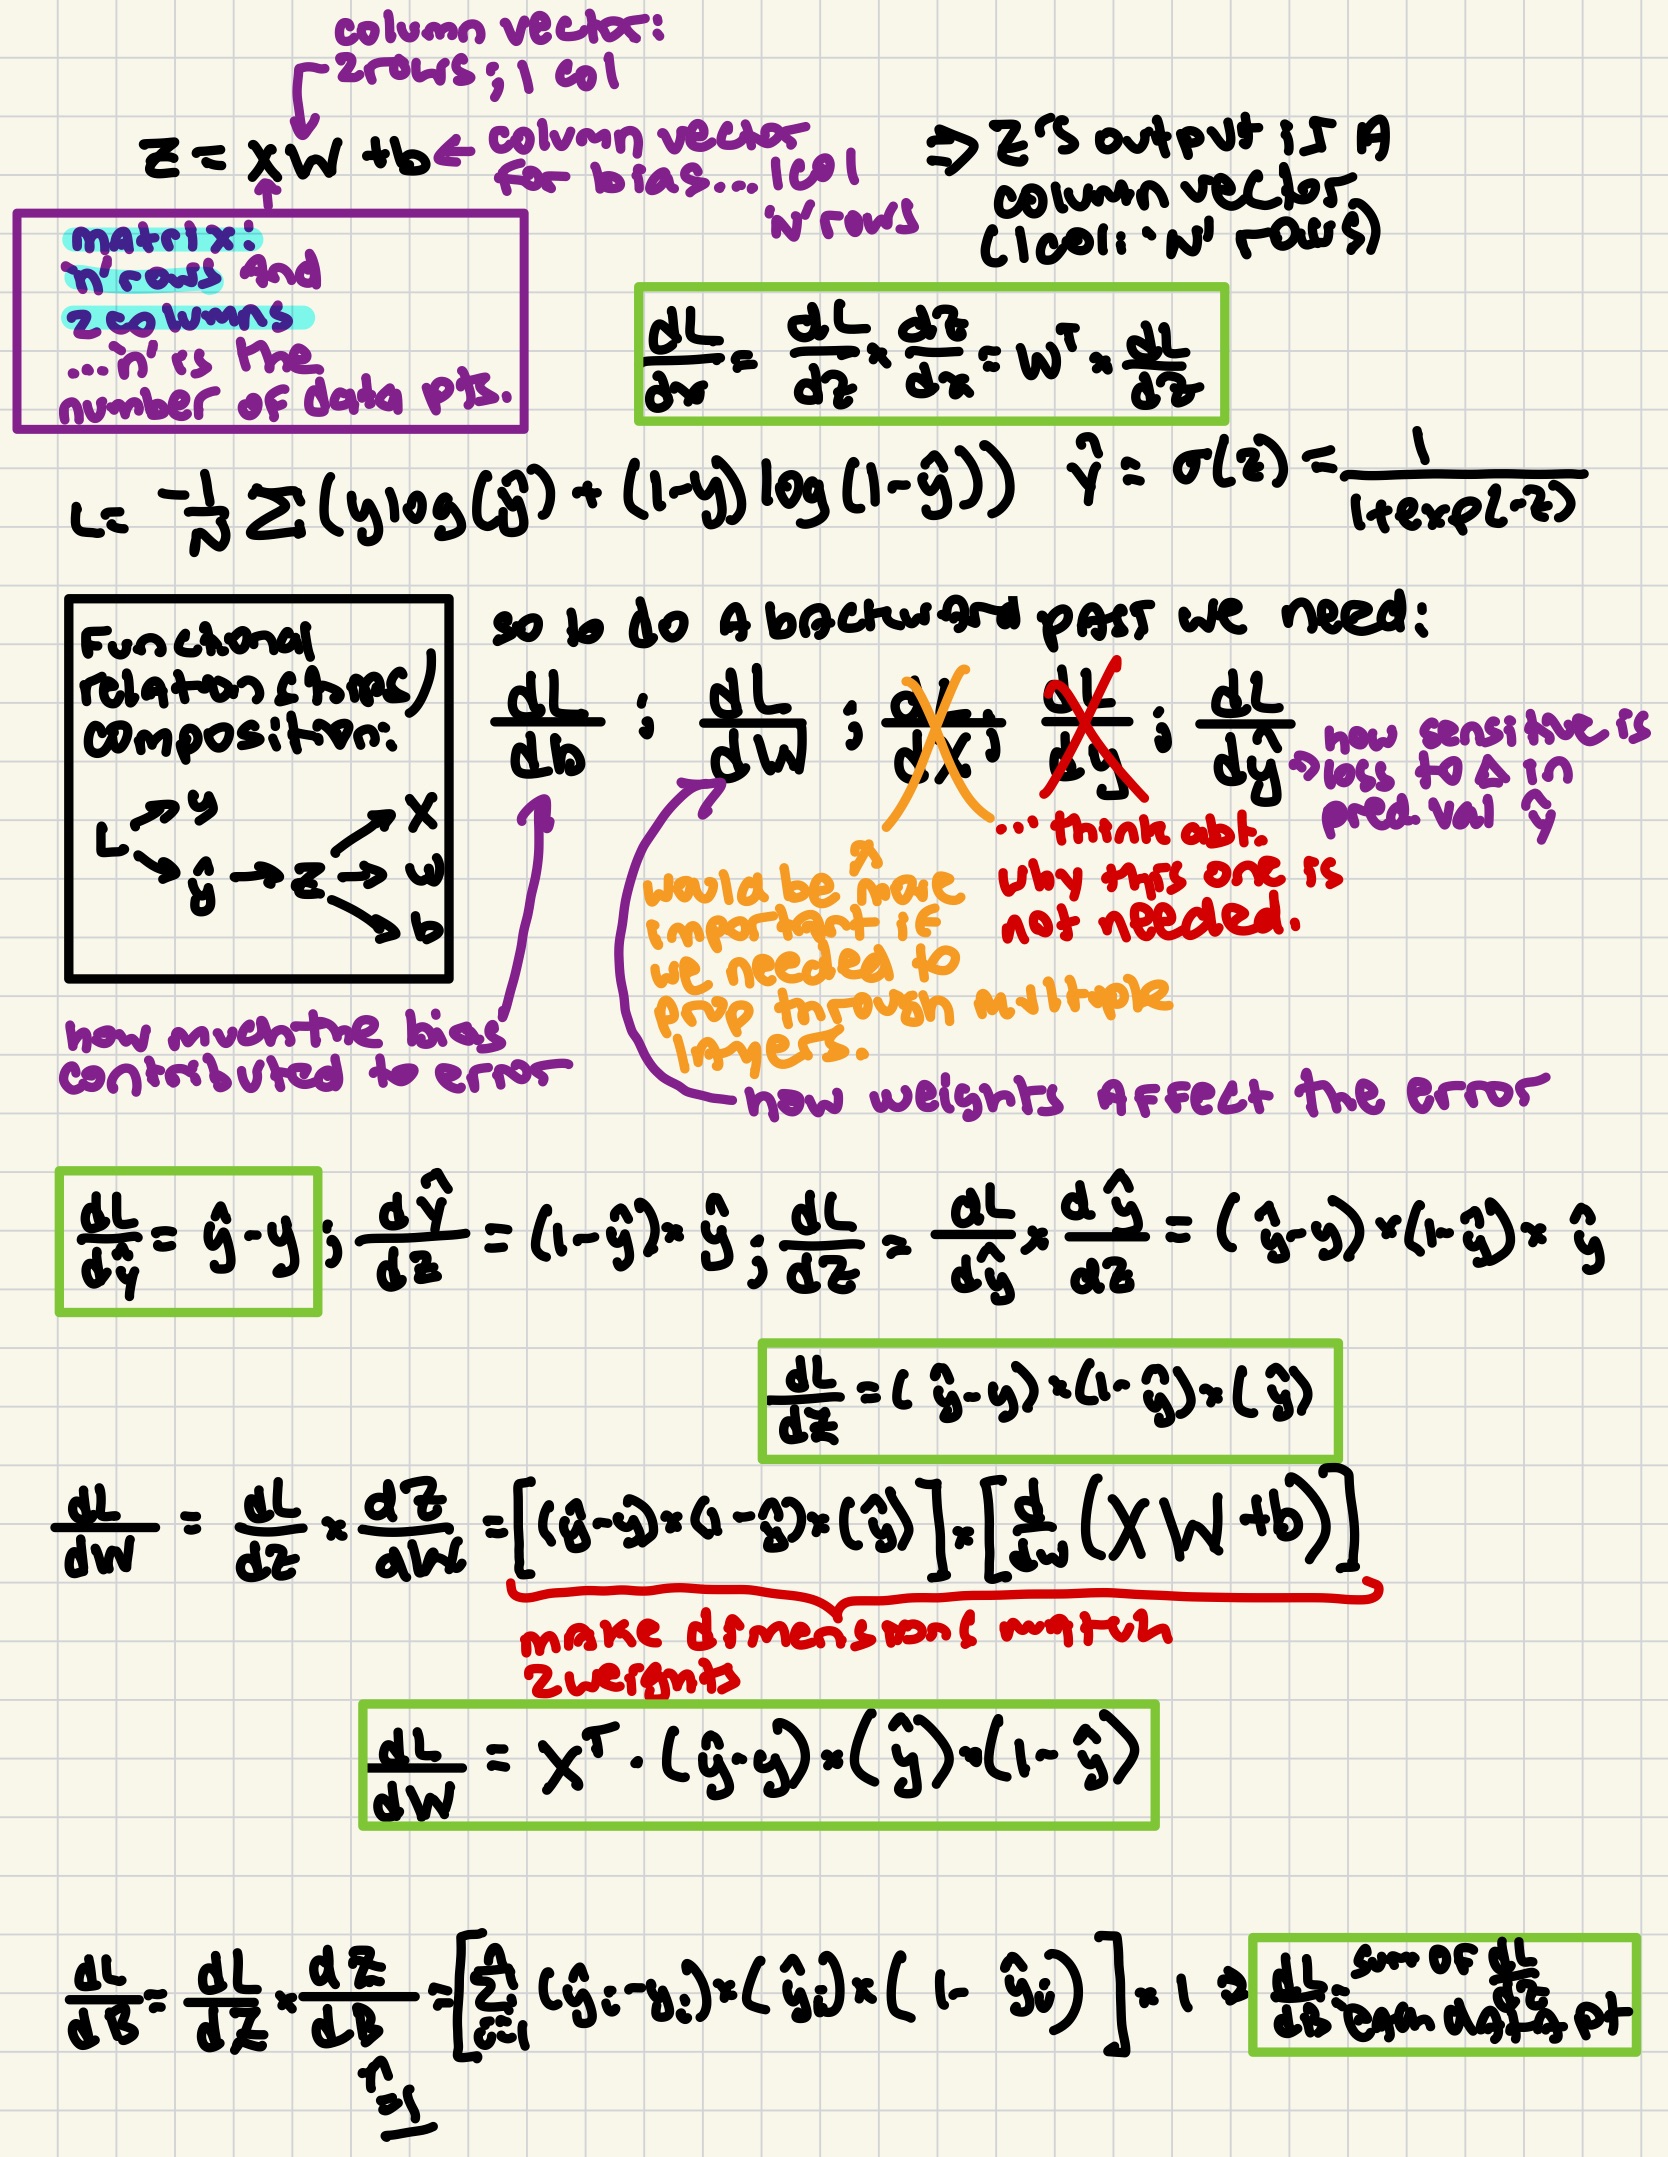 column vector:
2 rows; 1 col
Z = XW + b ← column vector
for bias... 1 col
'N' rows
⇒ Z's output is A
column vector
(1 col: 'N' rows)
matrix:
'n' rows and
2 columns
...'n' is the
number of data pts.
dL/dx = dL/dz * dz/dx = W^T * dL/dz
L = -1/N Σ (y log(ŷ) + (1-y) log(1-ŷ))
Ŷ = σ(z) = 1/(1+exp(-z))
Functional
relationships/
composition:
L → y
L → ŷ → z → X
z → w
z → b
so to do A backward pass we need:
dL/db ; dL/dW ; dL/dX ; dL/dy ; dL/dŷ
→ how sensitive is
loss to Δ in
pred. val ŷ
... think abt.
why this one is
not needed.
would be more
important if
we needed to
prop through multiple
layers.
how much the bias
contributed to error
how weights affect the error
dL/dŶ = ŷ-y ; dŶ/dz = (1-ŷ) * ŷ ; dL/dz = dL/dŷ * dŷ/dz = (ŷ-y) * (1-ŷ) * ŷ
dL/dz = (ŷ-y) * (1-ŷ) * (ŷ)
dL/dW = dL/dz * dz/dW = [(ŷ-y) * (1-ŷ) * (ŷ)] * [d/dw (XW+b)]
make dimensions match
2 weights
dL/dW = X^T · (ŷ-y) * (ŷ) * (1-ŷ)
dL/dB = dL/dZ * dZ/dB = [Σ i=1 (ŷi-yi) * (ŷi) * (1-ŷi)] * 1 ⇒ dL/dB = sum of dL/dz
each data pt
=1